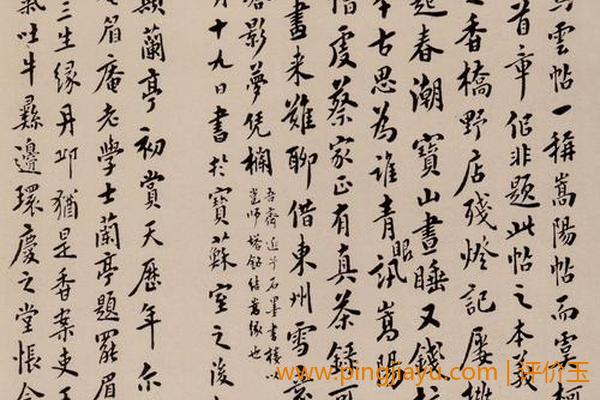 雲帖一稱嵩陽帖而虞柯
首章作非題此帖之本義
香橋野店殘燈記屢掛
起春潮寶山晝睡又錢
本古思為誰青眼訊嵩陽
借虔蔡家正有真茶錄可
畫來難聊借東州雪
影夢憑欄
吾齋近斗石墨書樓以
師塔銘結嵩緣也
月十九日書於寶蘇室之後
顥蘭亭初賞天歷年尒
眉庵老學士蘭亭題罷眉
三生緣丹邱猶是香案吏
氣吐牛彝邊環慶之堂悵今
www.pingjiayu.com | 评价玉